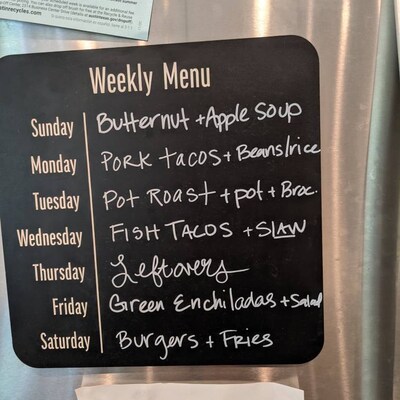 Weekly Menu
Sunday Butternut + Apple Soup
Monday Pork tacos + Beans/rice
Tuesday Pot Roast + pot + Broc.
Wednesday Fish Tacos + Slaw
Thursday Leftovers
Friday Green Enchiladas + Salad
Saturday Burgers + Fries